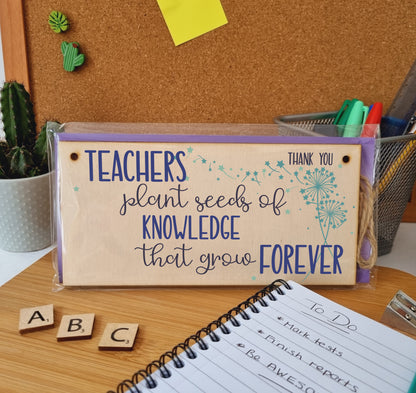 THANK YOU
TEACHERS
plant seeds of
KNOWLEDGE
that grow FOREVER
A₁ B₃ C₃
To Do
* Mark tests
* Finish reports
* Be AWESOME